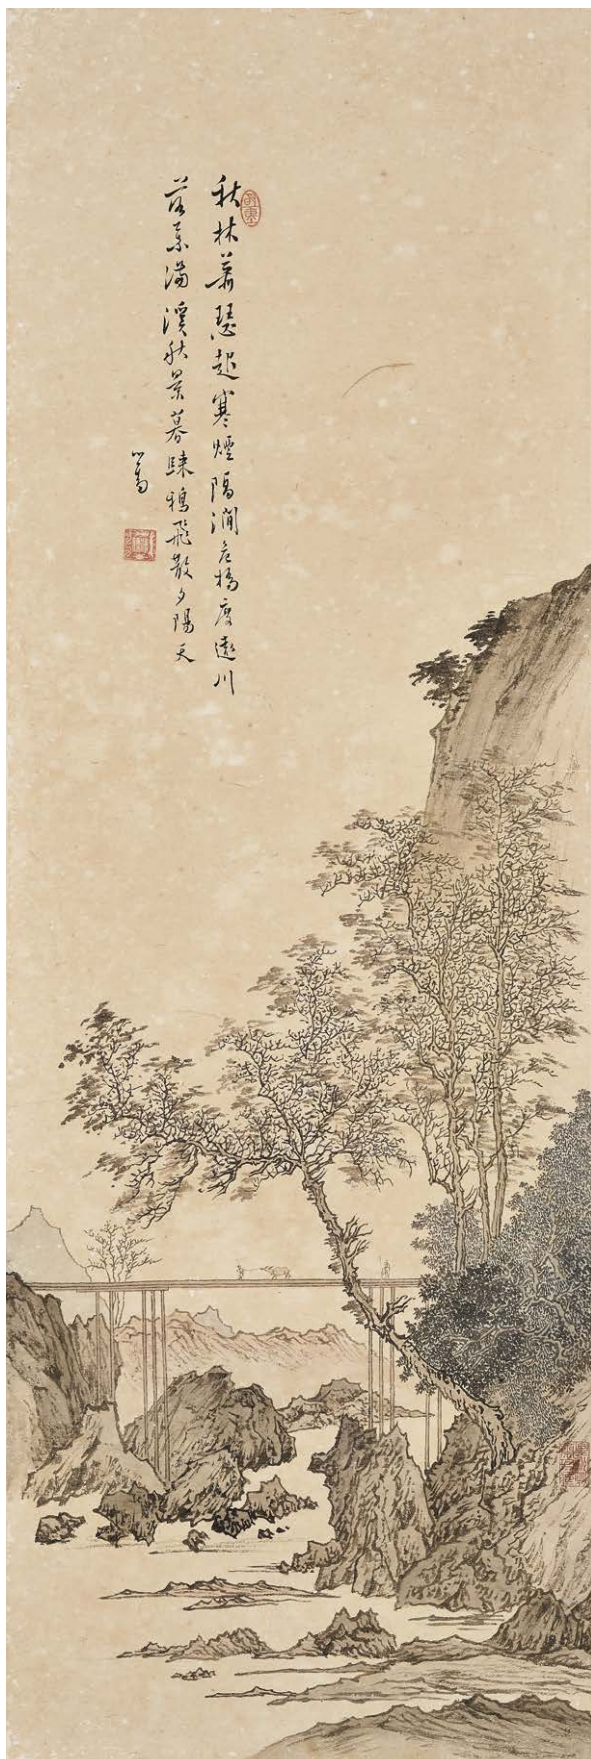 秋林蕭瑟起寒煙隔澗危橋度遠川
落葉滿溪秋景暮歸鴉飛散夕陽天
心畬